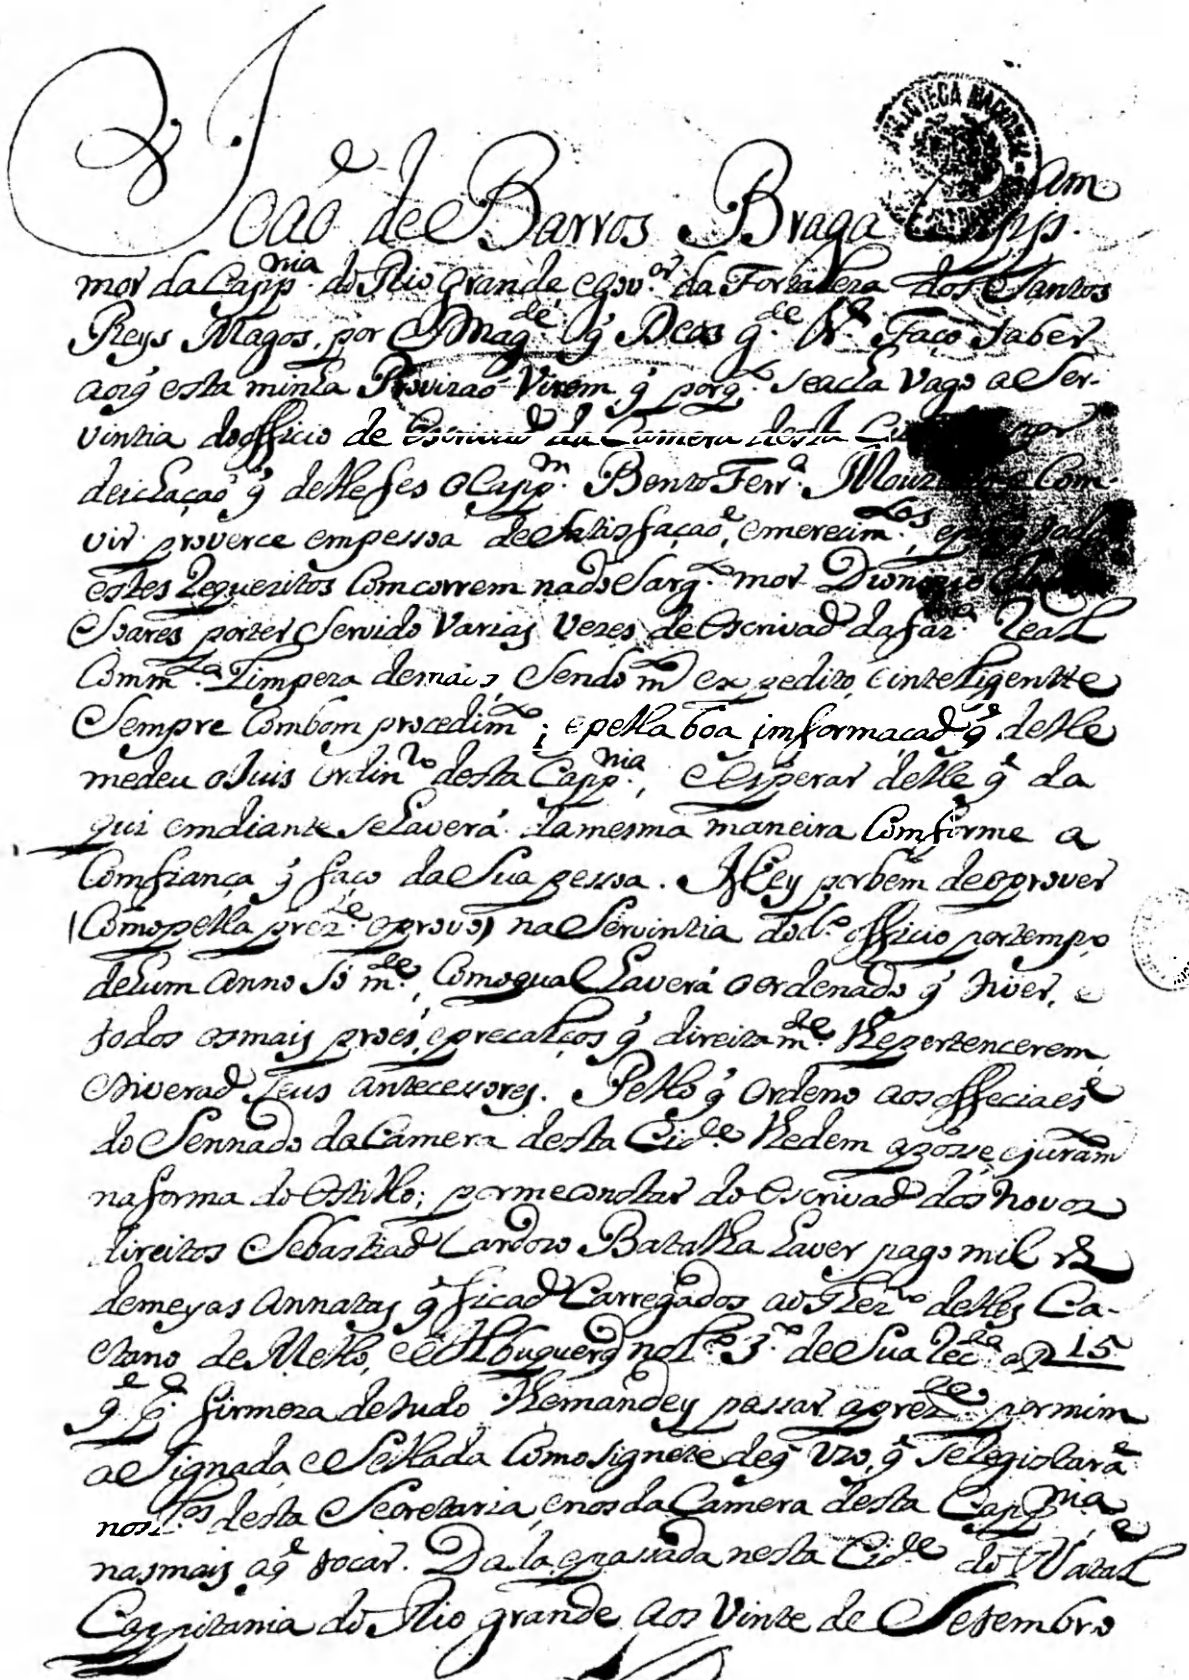 João de Barros Braga Capp.am
mor da Capp.nia do Rio grande e gov.or da Fortaleza dos Santos
Reys Magos, por S Mag.de q̃ Deos g.de &.a Faço saber
aos q̃ esta minha Provizaõ Virem q̃ porq.to seacha Vago a Ser-
vintia do officio de Escrivaõ da Camera desta por
deichaçaõ q̃ delle fes o Capp.m Bento Ferr.a Com-
vir proverce em pessoa de Satisfaçaõ, e merecim.tos,
estes Requezitos Comcorrem na do Sarg.to mor Dionezio
Soares por ter Servido Varias Vezes de Escrivaõ da faz.a Real
Comm.ta Limpeza demais, Sendo m.to expedito, e intelligentte
Sempre Combom procedim.to; epella boa imformacaõ q̃ delle
medeu o Juis Ordin.ro desta Capp.nia, e esperar delle q̃ da
qui emdiante se haverá da mesma maneira Comforme a
Comfiança q̃ faço da Sua pessoa. Hey porbem deoprover
(Como pella prez.te o provo) na Servintia do d.o officio por tempo
de hum anno Só m.te, Com o qual haverá o ordenado q̃ tiver, e
todos os mais proés, e precalços q̃ direitam.te lhe pertencerem
e tiveraõ seus antecessores. Pello q̃ Ordeno aos offeciaes
do Sennado da Camera desta Cid.e lhe dem a posse, e juram
na forma do Estillo; por me constar do Escrivaõ dos novos
direitos Sebastiaõ Cardozo Batalha haver pago mil rs
de meyas annatas q̃ ficaõ Carregados ao Thez.ro delles Ca-
etano de Mello, e Albuquerq̃ no L.o 3.o de Sua Rec.ta a f 15
q̃ p.a firmeza de tudo lhe mandey passar a prez.te por mim
a Signada e Sellada Com o Signete de q̃ Uzo, q̃ Se Registará
nos L.os desta Secretaria, e nos da Camera desta Capp.nia e
nas mais a q̃ tocar. Dada e passada nesta Cid.e do Natal
Cappitania do Rio grande aos Vinte de Setembro